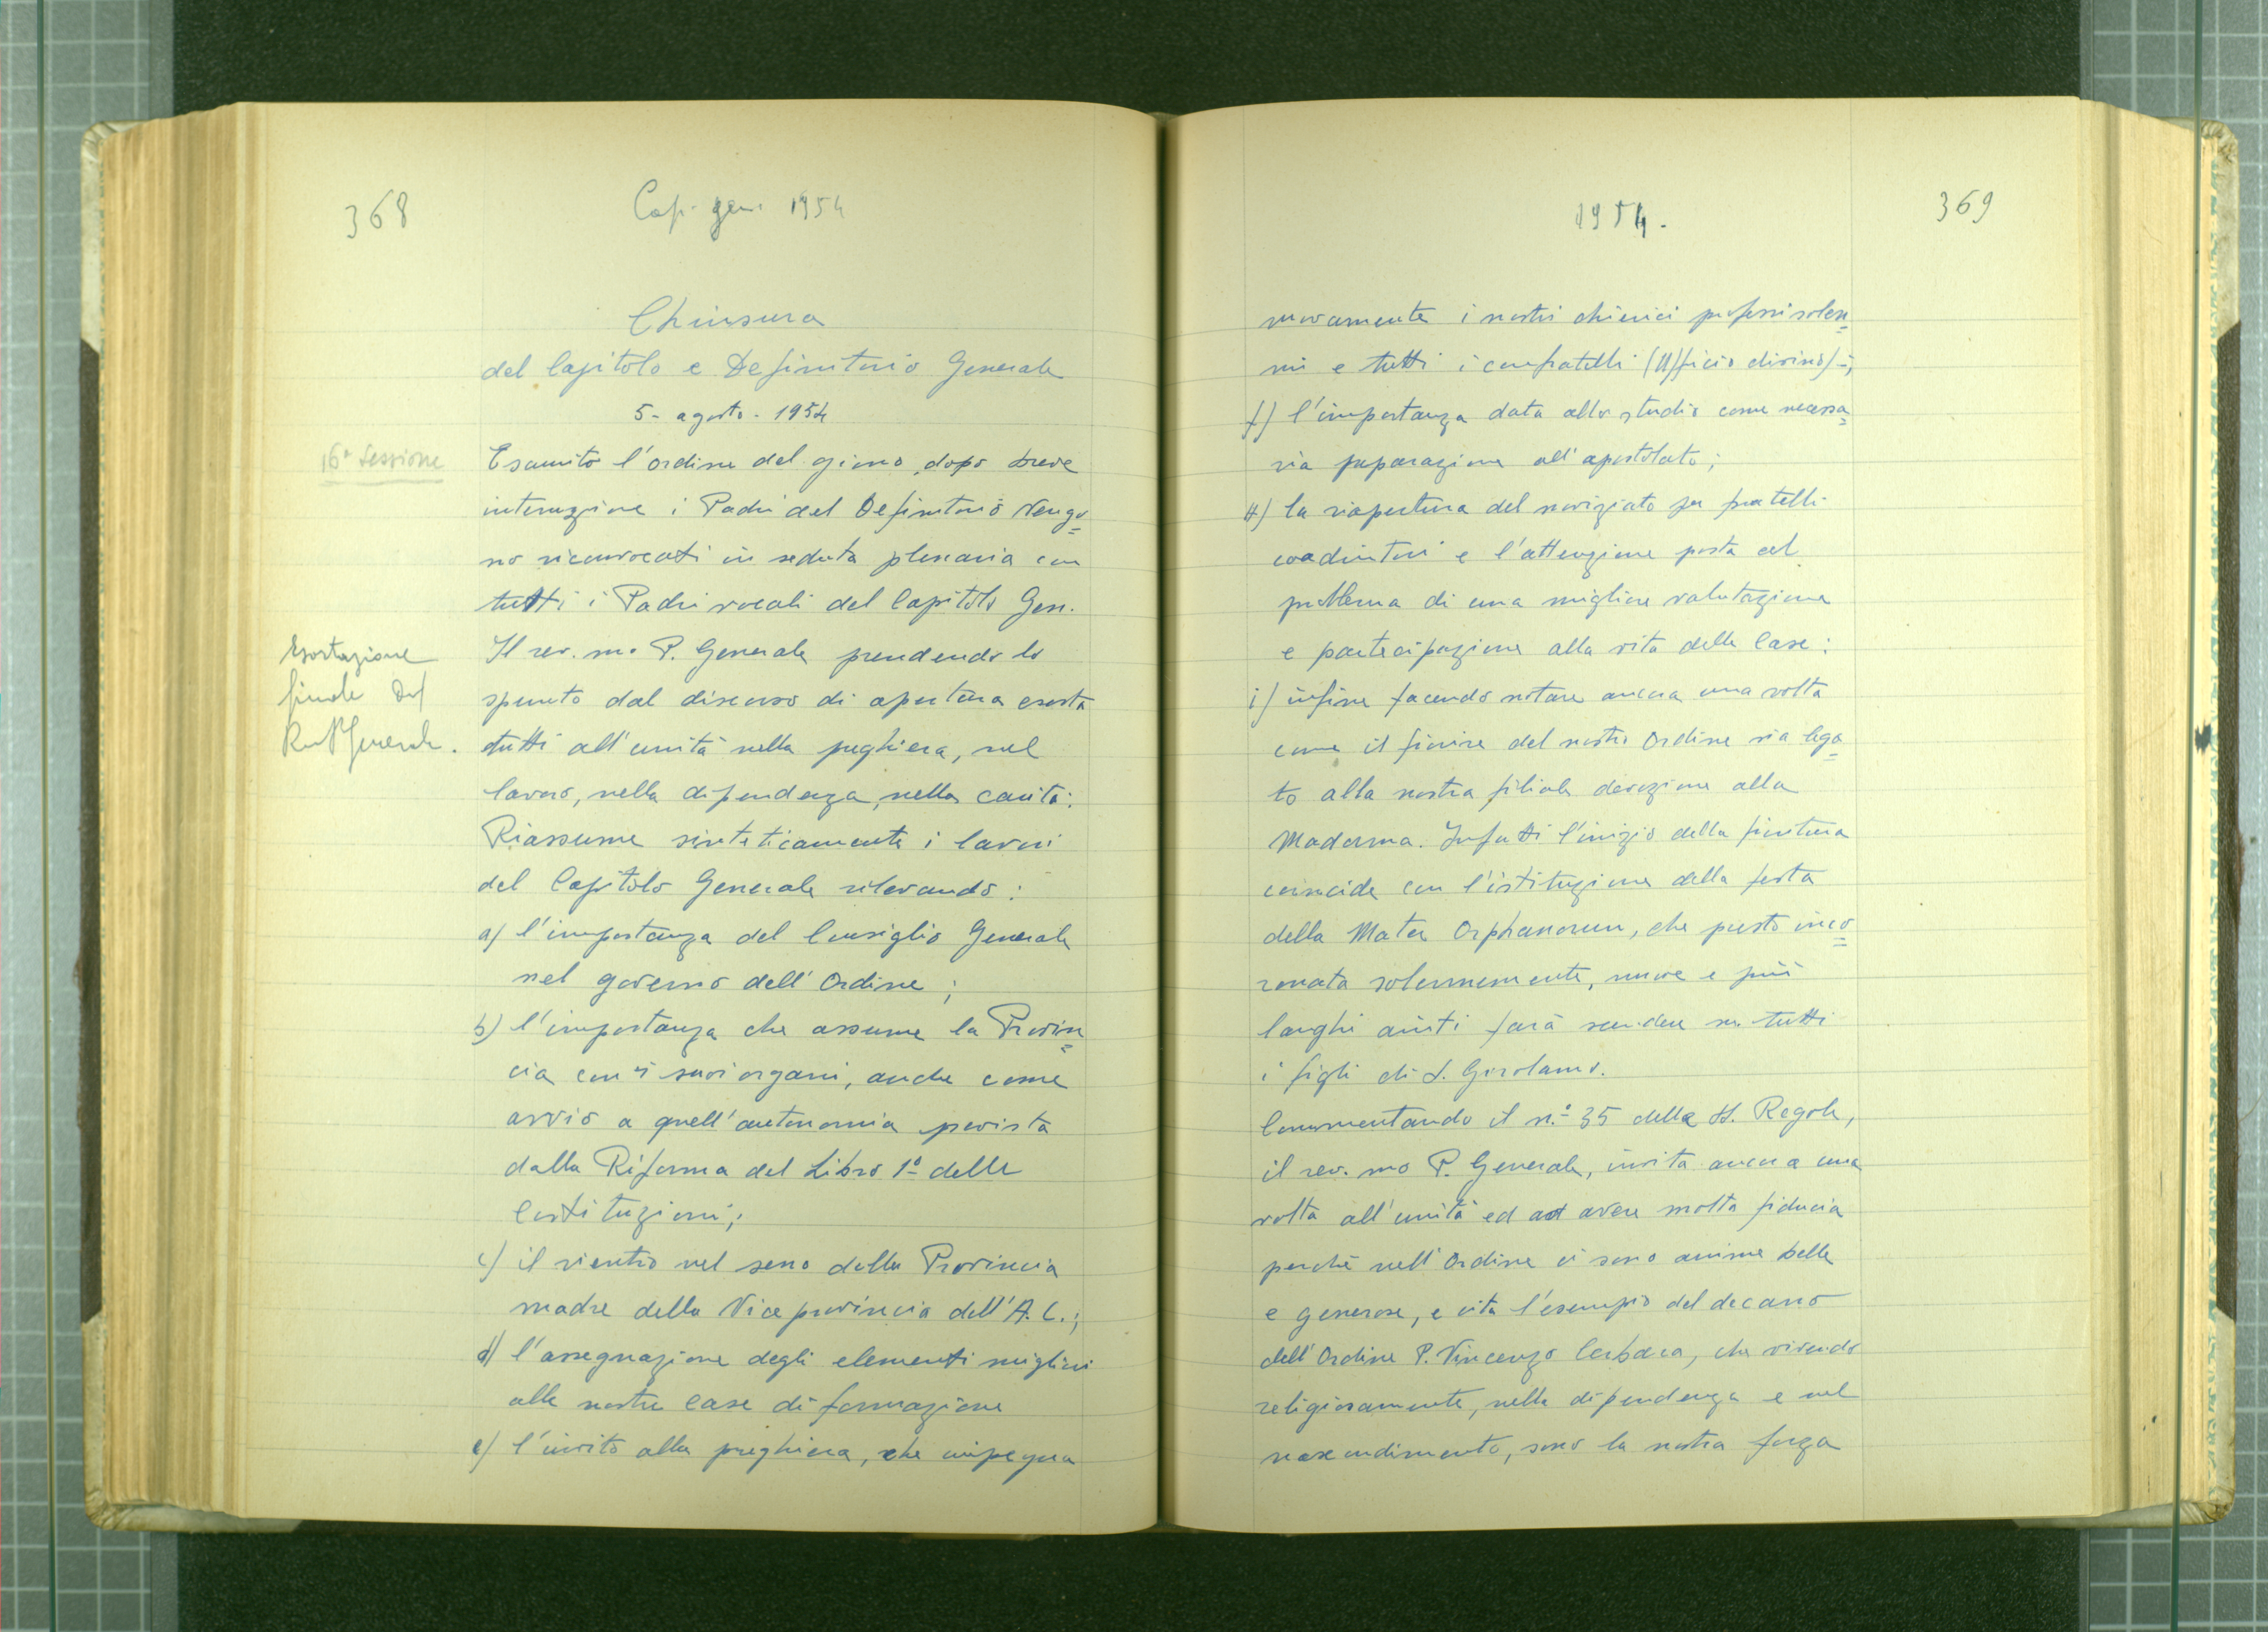 368
Cap. gen. 1954
Chiusura
del Capitolo e Definitorio Generale
5 - agosto - 1954
16ª Sessione
Esaurito l'ordine del giorno, dopo breve
interruzione i Padri del Definitorio vengo=
no riconvocati in seduta plenaria con
tutti i Padri vocali del Capitolo Gen.
Esortazione
finale del
Rev P Generale.
Il rev. mo P. Generale prendendo lo
spunto dal discorso di apertura esorta
tutti all'unità nella preghiera, nel
lavoro, nella dipendenza, nella carità.
Riassume sinteticamente i lavori
del Capitolo Generale rilevando:
a) l'importanza del Consiglio Generale
nel governo dell'Ordine;
b) l'importanza che assume la Provin=
cia con i suoi organi, anche come
avvio a quell'autonomia prevista
dalla Riforma del Libro 1º delle
Costituzioni;
c) il rientro nel seno della Provincia
madre della Vice provincia dell'A. C.;
d) l'assegnazione degli elementi migliori
alle nostre case di formazione
e) l'invito alla preghiera, che impegna
1954.
369
nuovamente i nostri chierici professi solen=
ni e tutti i confratelli (Ufficio divino) -;
f) l'importanza data allo studio come necessa=
ria preparazione all'apostolato;
H) la riapertura del noviziato per fratelli
coadiutori e l'attenzione posta al
problema di una migliore valutazione
e partecipazione alla vita delle Case:
i) infine facendo notare ancora una volta
come il fiorire del nostro Ordine sia lega=
to alla nostra filiale devozione alla
Madonna. Infatti l'inizio della fioritura
coincide con l'istituzione della festa
della Mater Orphanorum, che presto inco=
ronata solennemente, nuove e più
larghi aiuti farà scendere su tutti
i figli di S. Girolamo.
Commentando il n.º 35 delle SS. Regole,
il rev. mo P. Generale, invita ancora una
volta all'unità ed ad avere molta fiducia
perchè nell'Ordine ci sono anime belle
e generose, e cita l'esempio del decano
dell'Ordine P. Vincenzo Cerbara, che vivendo
religiosamente, nella dipendenza e nel
nascondimento, sono la nostra forza